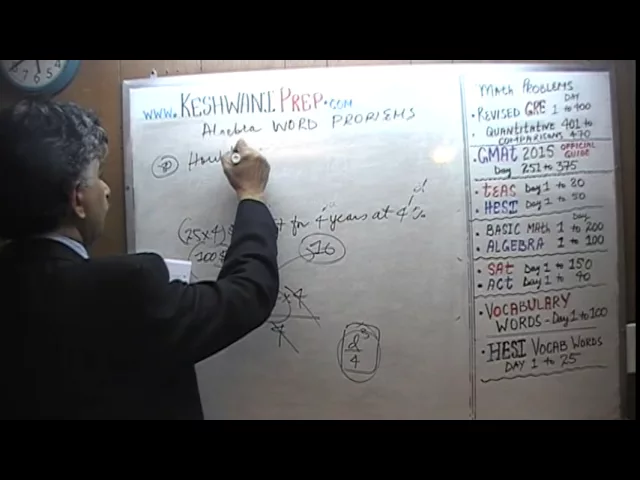 WWW. KESHWANI PREP.COM
Algebra WORD PROBLEMS
8 How
(25x4)$ for 4 years at 4%
100 $ $16
x 4
4
d³
4
Math PROBLEMS
DAY
• REVISED GRE 1 to 400
• QUANTITATIVE 401 to
COMPARISONS 470
• GMAT 2015 OFFICIAL GUIDE
DAY 251 to 375
• TEAS Day 1 to 20
• HESI Day 1 to 50
Day
• BASIC MATH 1 to 200
• ALGEBRA 1 to 100
• SAT Day 1 to 150
• ACT Day 1 to 40
• VOCABULARY
WORDS - Day 1 to 100
• HESI VOCAB WORDS
DAY 1 to 25